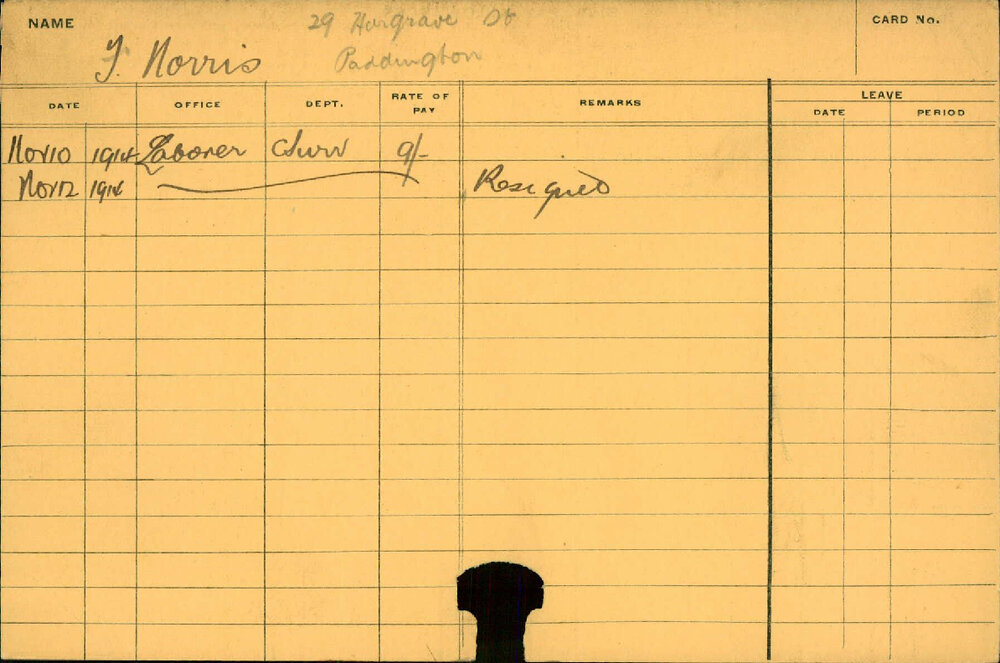 NAME
29 Hargrave St
CARD No.
J. Norris
Paddington
DATE OFFICE DEPT. RATE OF PAY REMARKS LEAVE
DATE PERIOD
Nov 10 1914 Laborer Surv 9/-
Nov 12 1914 Resigned